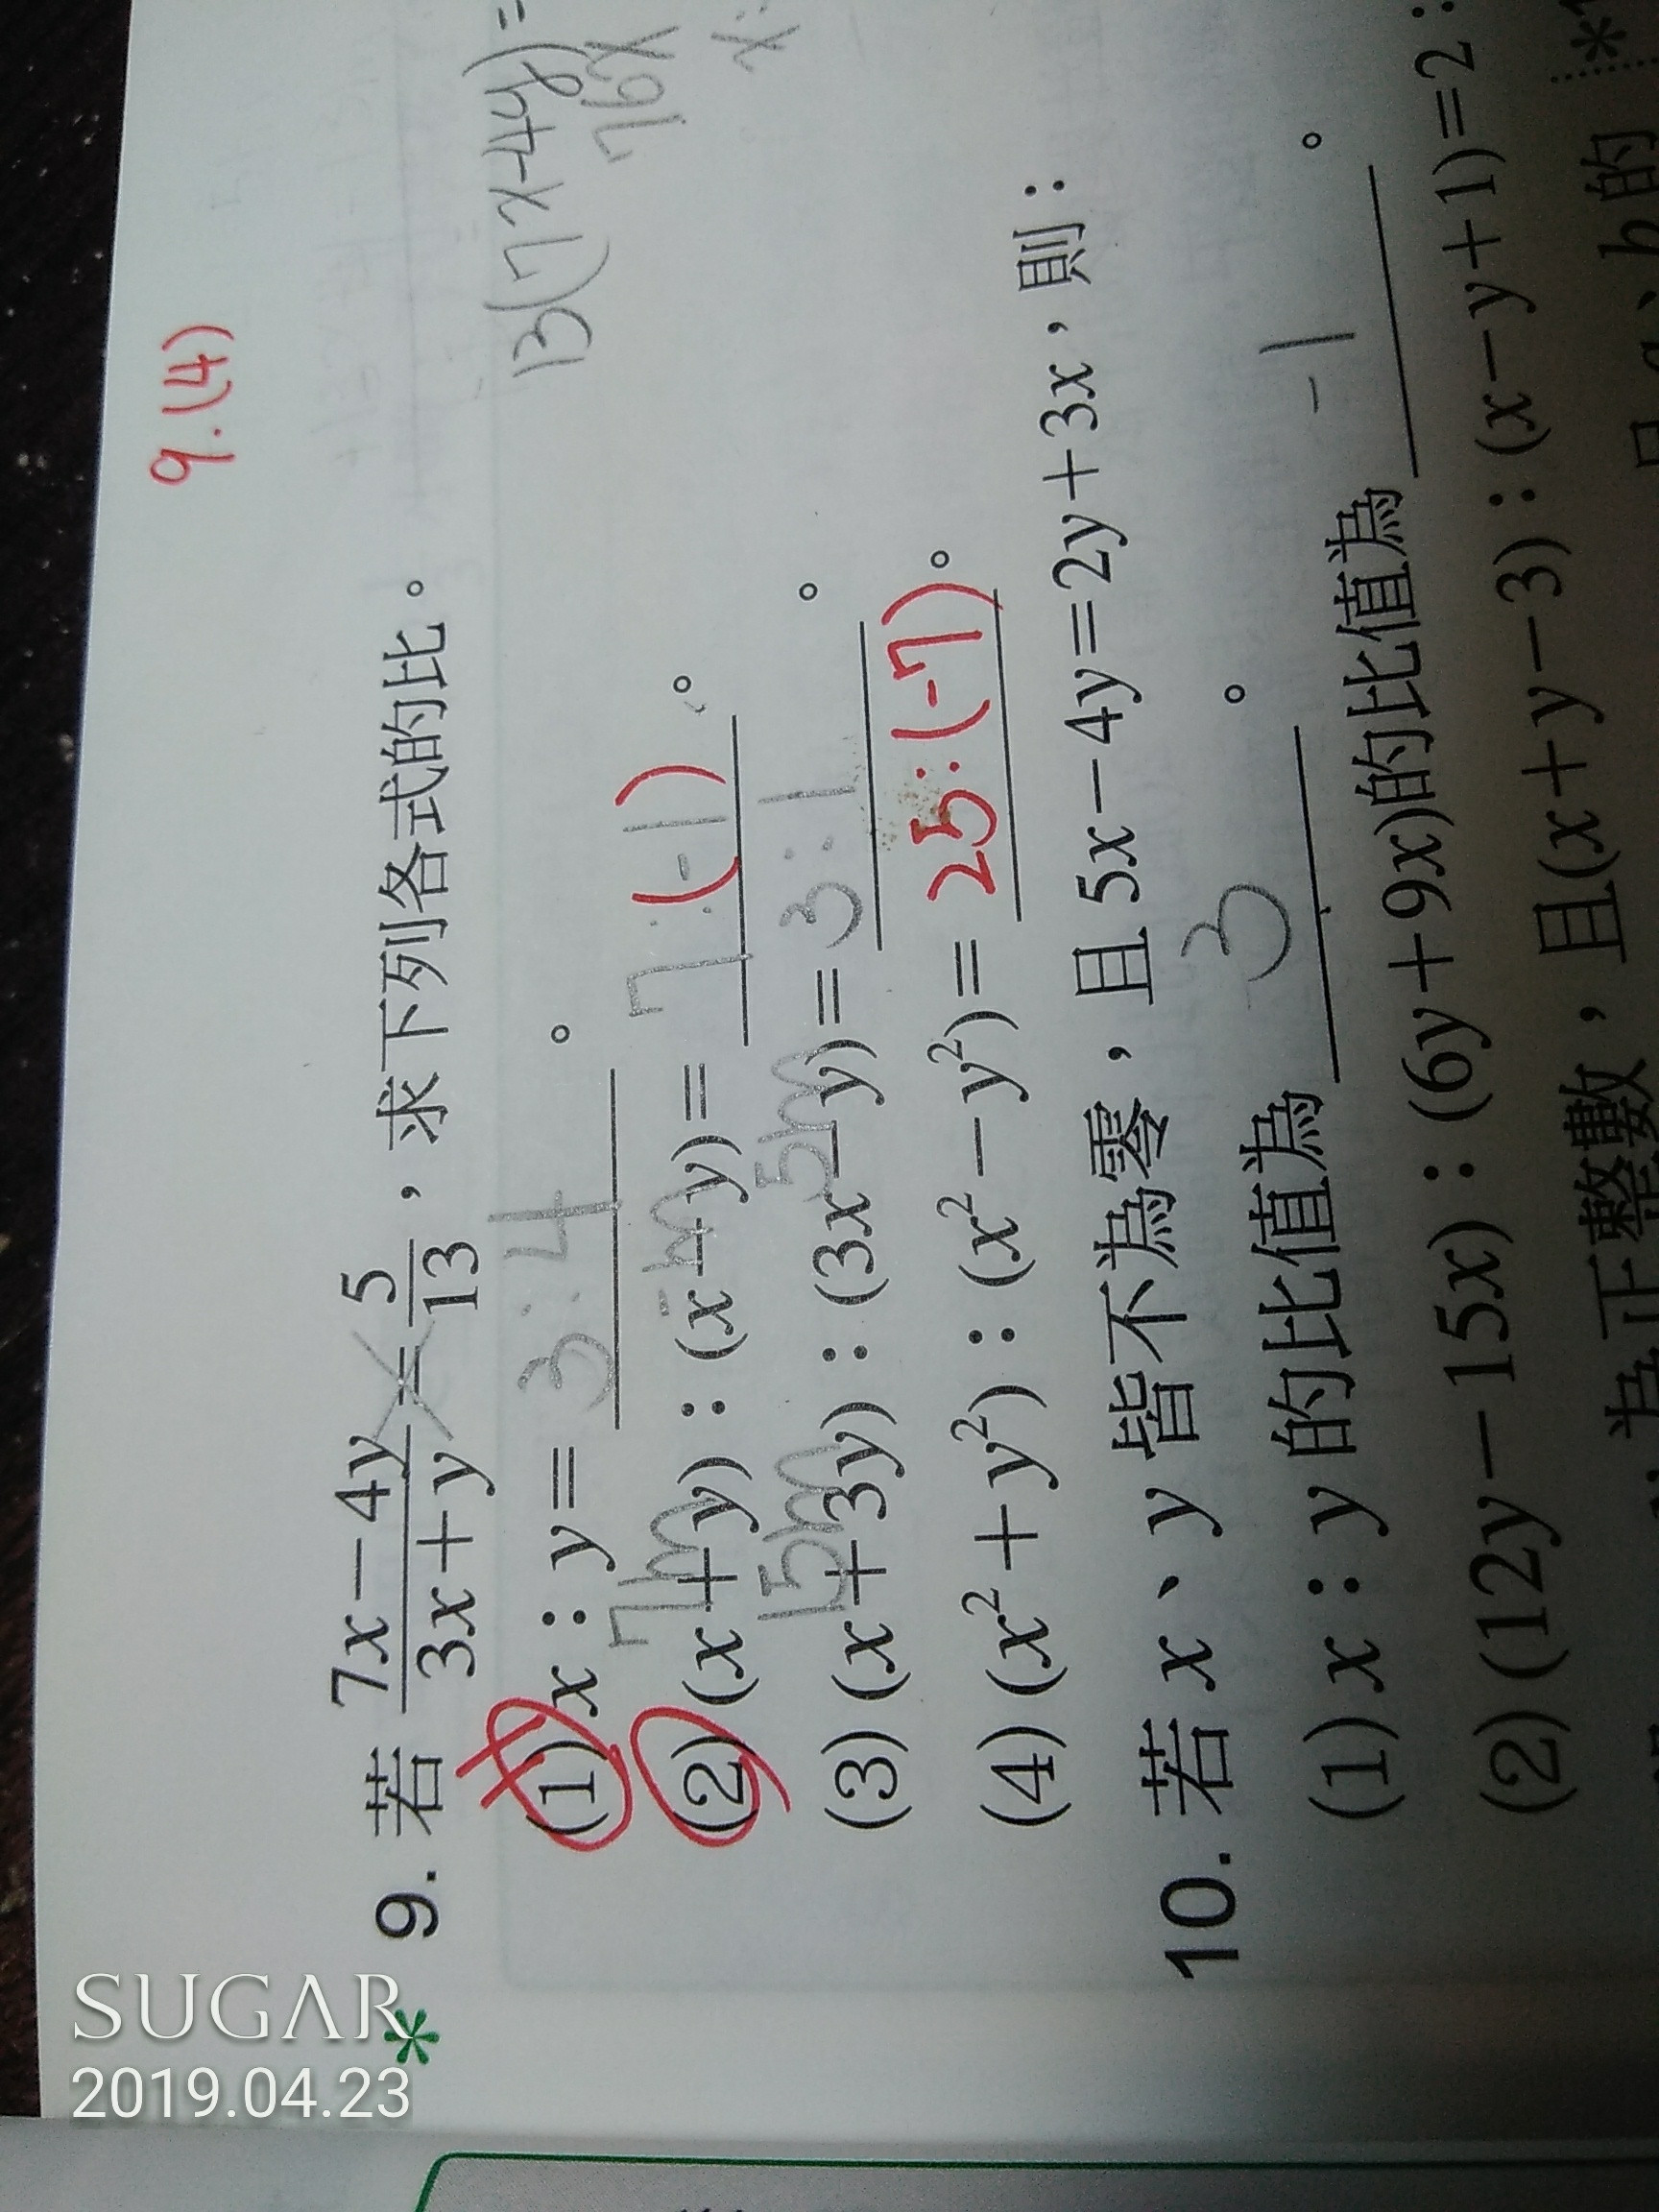 9.(4)
9. 若 7x－4y / 3x＋y ＝ 5/13，求下列各式的比。
13(7x-4y)=
76x
x:
(1) x：y＝ 3:4 。
7m -m
(2) (x＋y)：(x－y)＝ 7:(-1) 。
15m 5m
(3) (x＋3y)：(3x－y)＝ 3:1 。
(4) (x²＋y²)：(x²－y²)＝ 25:(-7) 。
10. 若 x、y 皆不為零，且 5x－4y＝2y＋3x，則：
(1) x：y 的比值為 3 。
(2) (12y－15x)：(6y＋9x)的比值為 -1 。
為正整數，且(x＋y－3)：(x－y＋1)＝2：
b的
SUGAR
2019.04.23